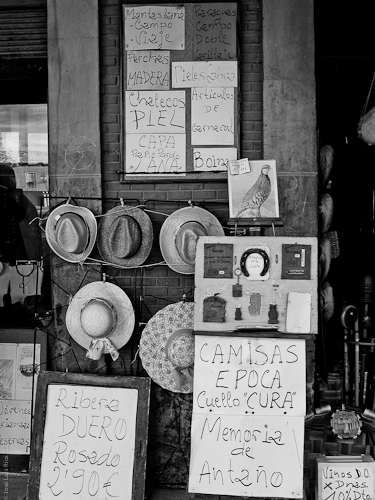 Mantas Lana
-Campo
-Viaje
Paraguas
Campo
Doble
Varillaje
Perchas
MADERA
Pieles Cabra
Chalecos
PIEL
Artículos
DE
Carnaval
CAPA
Paño Pardo
LANA
Boina
CAMISAS
EPOCA
Cuello "CURA"
Memoria
de
Antaño
Ribera
DUERO
Rosado
2'90€
Vinos D.O.
x Dnas.
10% Dto